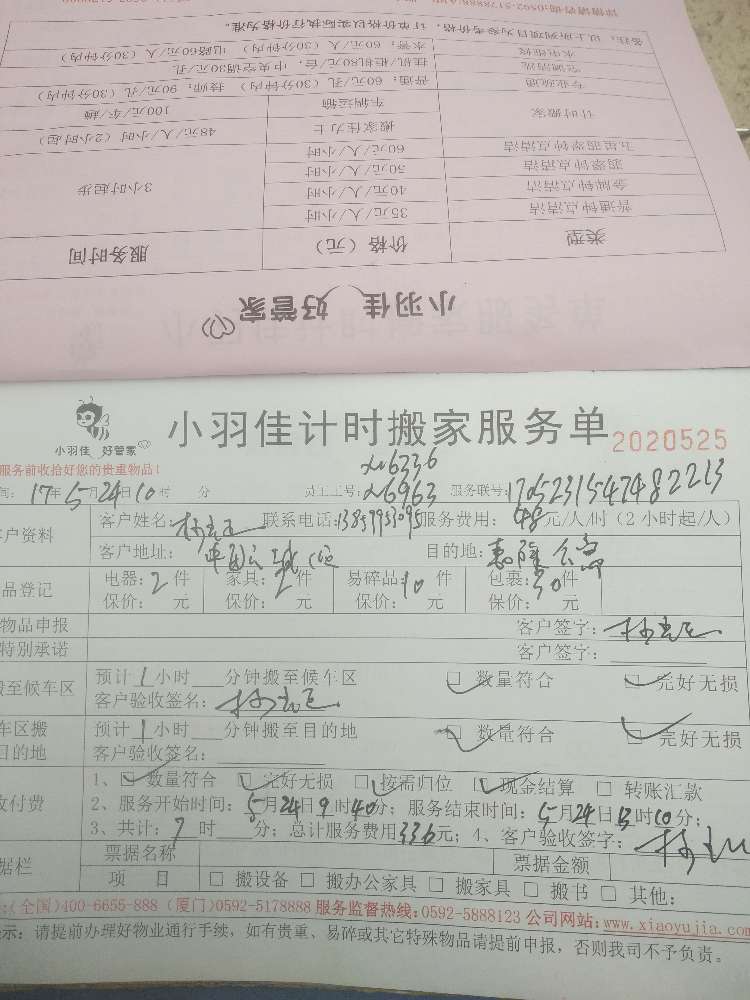 详情请咨询:0592-5178888
备注：以上所列项目均为参考价格，订单价格以实际执行价格为准。
水电维修 水管：60元/人（30分钟内） 电路60元/人（30分钟内）
空调清洗 挂机/柜机80元/台，中央空调30元/孔
专业疏通 普通：60元/孔（30分钟内） 技师：90元/孔（30分钟内）
计时搬家 车辆运输 100元/车/趟
搬家佳力士 48元/人/小时（2小时起）
五星翡翠钟点清洁 60元/人/小时
翡翠钟点清洁 50元/人/小时
金牌钟点清洁 40元/人/小时 3小时起步
普通钟点清洁 35元/人/小时
类型 价格（元） 服务时间
小羽佳 好管家
小羽佳 好管家
小羽佳计时搬家服务单 2020525
服务前收拾好您的贵重物品！
xn6336
间：17年5月24日10时 分 员工工号：xn6963 服务联号：1705231547482213
客户资料 客户姓名： 联系电话：13859953095 服务费用：48元/人/时（2小时起/人）
客户地址： 目的地：
品登记 电器：2件 家具：2件 易碎品：10件 包裹：30件
保价： 元 保价： 元 保价： 元 保价： 元
物品申报 客户签字：
特别承诺 客户签字：
搬至候车区 预计1小时 分钟搬至候车区 数量符合 完好无损
客户验收签名：
车区搬目的地 预计1小时 分钟搬至目的地 数量符合 完好无损
客户验收签名：
收付费 1、数量符合 完好无损 按需归位 现金结算 转账汇款
2、服务开始时间：5月24日9时40分；服务结束时间：5月24日13时10分；
3、共计：7时 分；总计服务费用336元；4、客户验收签字：
据栏 票据名称 票据金额
项 目 搬设备 搬办公家具 搬家具 搬书 其他：
(全国)400-6655-888 (厦门)0592-5178888 服务监督热线:0592-5888123 公司网站:www.xiaoyujia.com
示：请提前办理好物业通行手续，如有贵重、易碎或其它特殊物品请提前申报，否则我司不予负责。